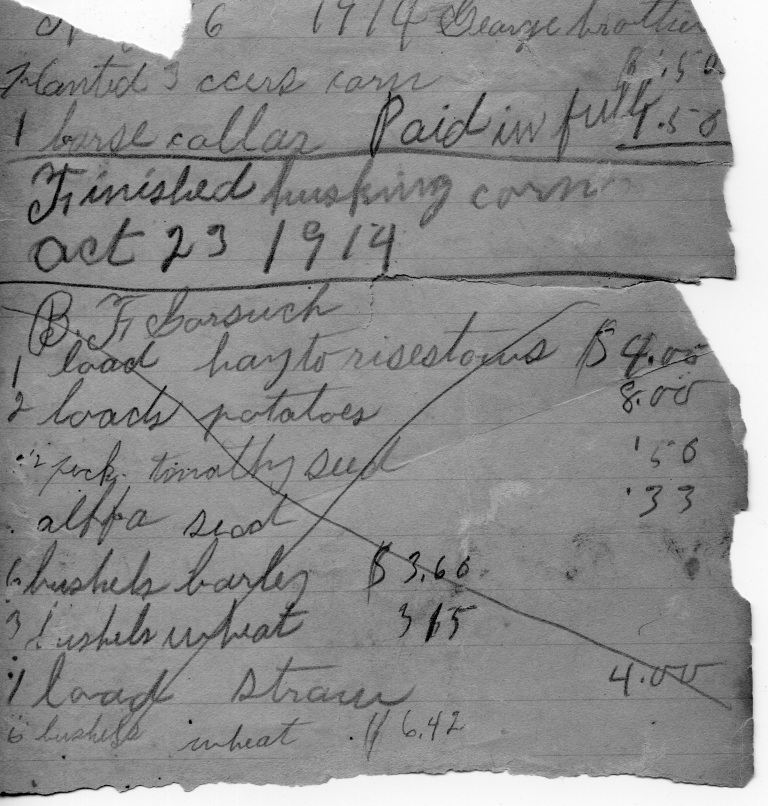 6 1914 George brother
Planted 3 ccers corn $ .50
1 horse collar Paid in full 1.50
Finished husking corn
oct 23 1914
B. F. Gorsuch
1 load hay to risestowns $ 4.00
2 loads potatoes 8.00
1/2 peck timothy seed .50
alffa seed .33
6 bushels barley $ 3.60
3 bushels wheat 3 15
1 load straw 4.00
6 bushels wheat $ 6.42